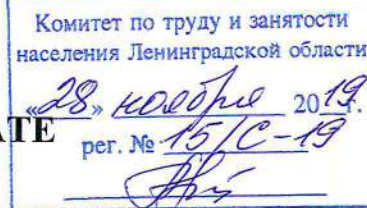 Комитет по труду и занятости
населения Ленинградской области
«28» ноября 2019г.
АТЕ
рег. № 15/С-19